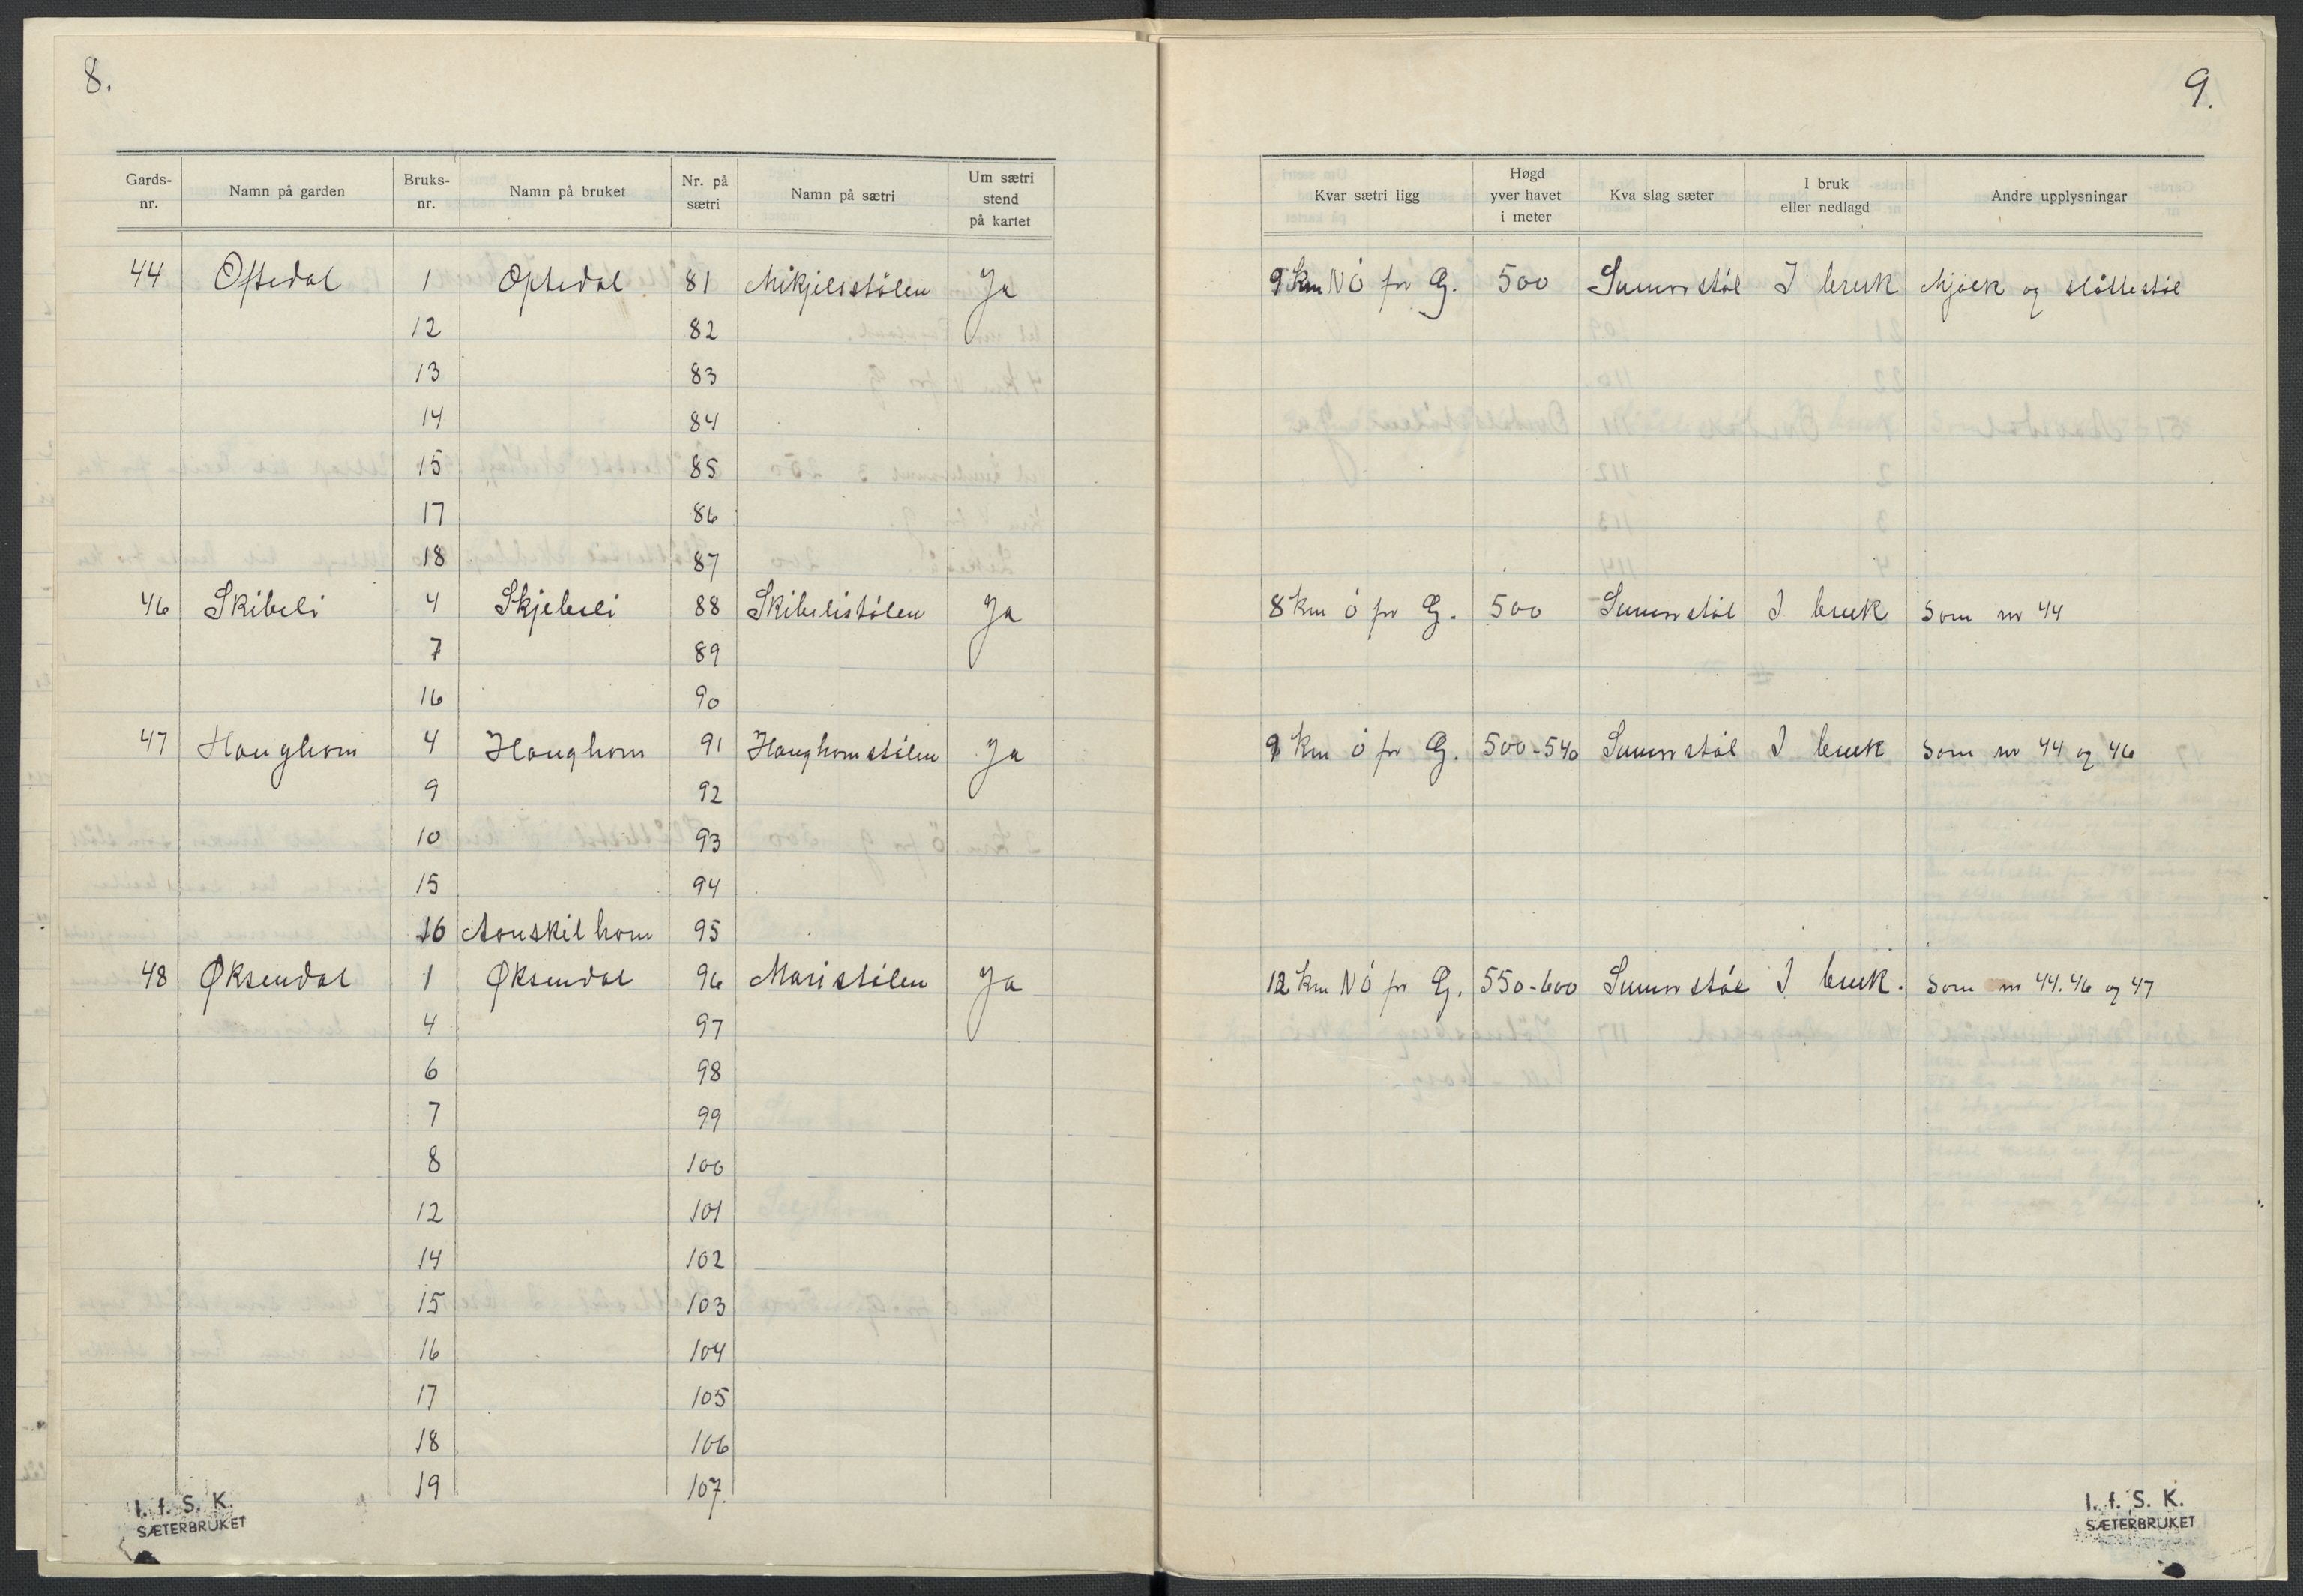 8.
Gards-nr. Namn på garden Bruks-nr. Namn på bruket Nr. på sætri Namn på sætri Um sætri stend på kartet
44 Oftedal 1 Oftedal 81 Mikjelsstølen Ja
12 82
13 83
14 84
15 85
17 86
18 87
46 Skibeli 4 Skjebeli 88 Skibelistølen Ja
7 89
16 90
47 Haughom 4 Haughom 91 Haughomstølen Ja
9 92
10 93
15 94
16 Aouskilhom 95
48 Øksendal 1 Øksendal 96 Maristølen Ja
4 97
6 98
7 99
8 100
12 101
14 102
15 103
16 104
17 105
18 106
19 107.
I. f. S. K.
SÆTERBRUKET
9.
Kvar sætri ligg Høgd yver havet i meter Kva slag sæter I bruk eller nedlagd Andre upplysningar
9 km NÓ fr G. 500 Sumarstøl I bruk Mjølk og slåttestøl
8 km ó fr G. 500 Sumarstøl I bruk Som nr 44
9 km ó fr G. 500-540 Sumarstøl I bruk Som nr 44 og 46
12 km NÓ fr G. 550-600 Sumarstøl I bruk. Som nr 44. 46 og 47
I. f. S. K.
SÆTERBRUKET